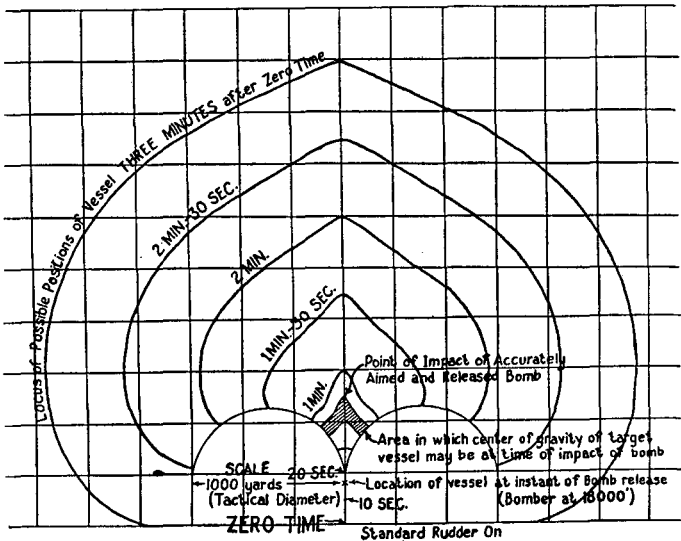 Locus of Possible Positions of Vessel THREE MINUTES after Zero Time
2 MIN.-30 SEC.
2 MIN.
1 MIN.-30 SEC.
1 MIN.
Point of Impact of Accurately
Aimed and Released Bomb
Area in which center of gravity of target
vessel may be at time of impact of bomb
SCALE
1000 yards
(Tactical Diameter)
20 SEC.
Location of vessel at instant of Bomb release
(Bomber at 18000')
10 SEC.
ZERO TIME
Standard Rudder On